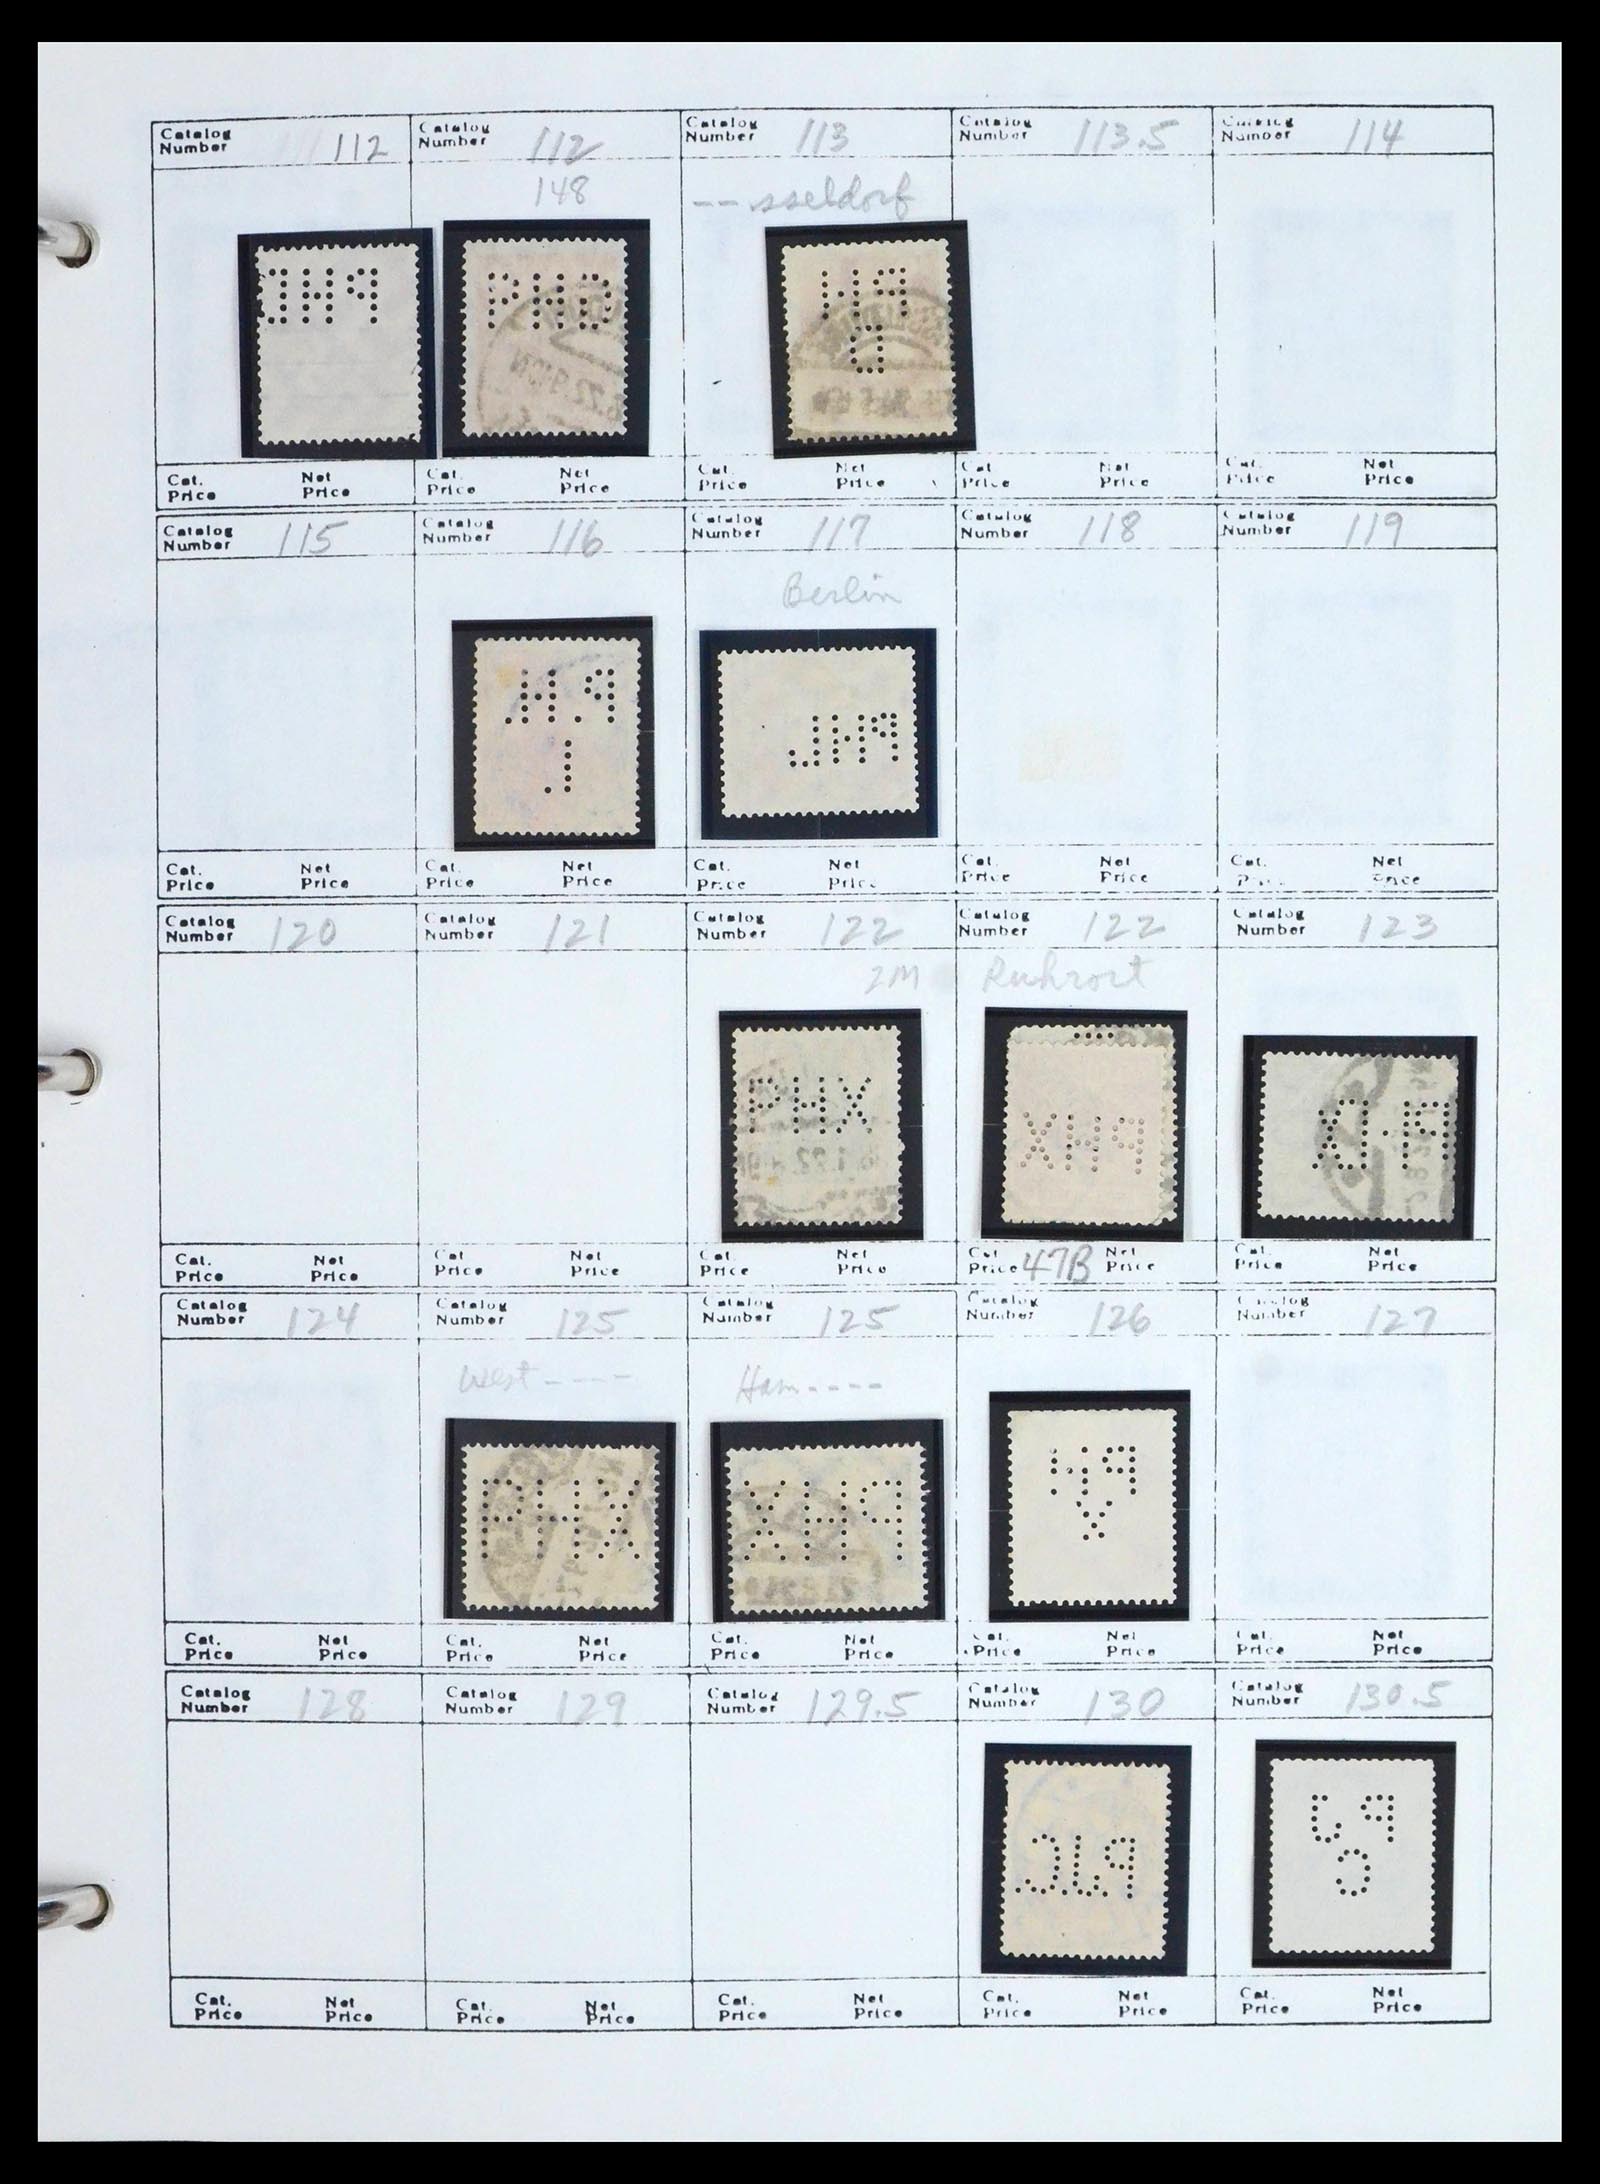 Catalog Number 112
Catalog Number 112
Catalog Number 113
Catalog Number 113.5
Catalog Number 114
148
---sseldorf
PHG
Cat. Price Net Price
Cat. Price Net Price
Cat. Price Net Price
Cat. Price Net Price
Cat. Price Net Price
Catalog Number 115
Catalog Number 116
Catalog Number 117
Catalog Number 118
Catalog Number 119
Berlin
P.H.
L.
PHL
Cat. Price Net Price
Cat. Price Net Price
Cat. Price Net Price
Cat. Price Net Price
Cat. Price Net Price
Catalog Number 120
Catalog Number 121
Catalog Number 122
Catalog Number 122
Catalog Number 123
2M
Ruhrort
PHX
XHP
Cat. Price Net Price
Cat. Price Net Price
Cat. Price Net Price
Cat. Price 47B Net Price
Cat. Price Net Price
Catalog Number 124
Catalog Number 125
Catalog Number 125
Catalog Number 126
Catalog Number 127
West----
Ham----
PHX
XHP
Cat. Price Net Price
Cat. Price Net Price
Cat. Price Net Price
Cat. Price Net Price
Cat. Price Net Price
Catalog Number 128
Catalog Number 129
Catalog Number 129.5
Catalog Number 130
Catalog Number 130.5
PJC
PJ
C
Cat. Price Net Price
Cat. Price Net Price
Cat. Price Net Price
Cat. Price Net Price
Cat. Price Net Price